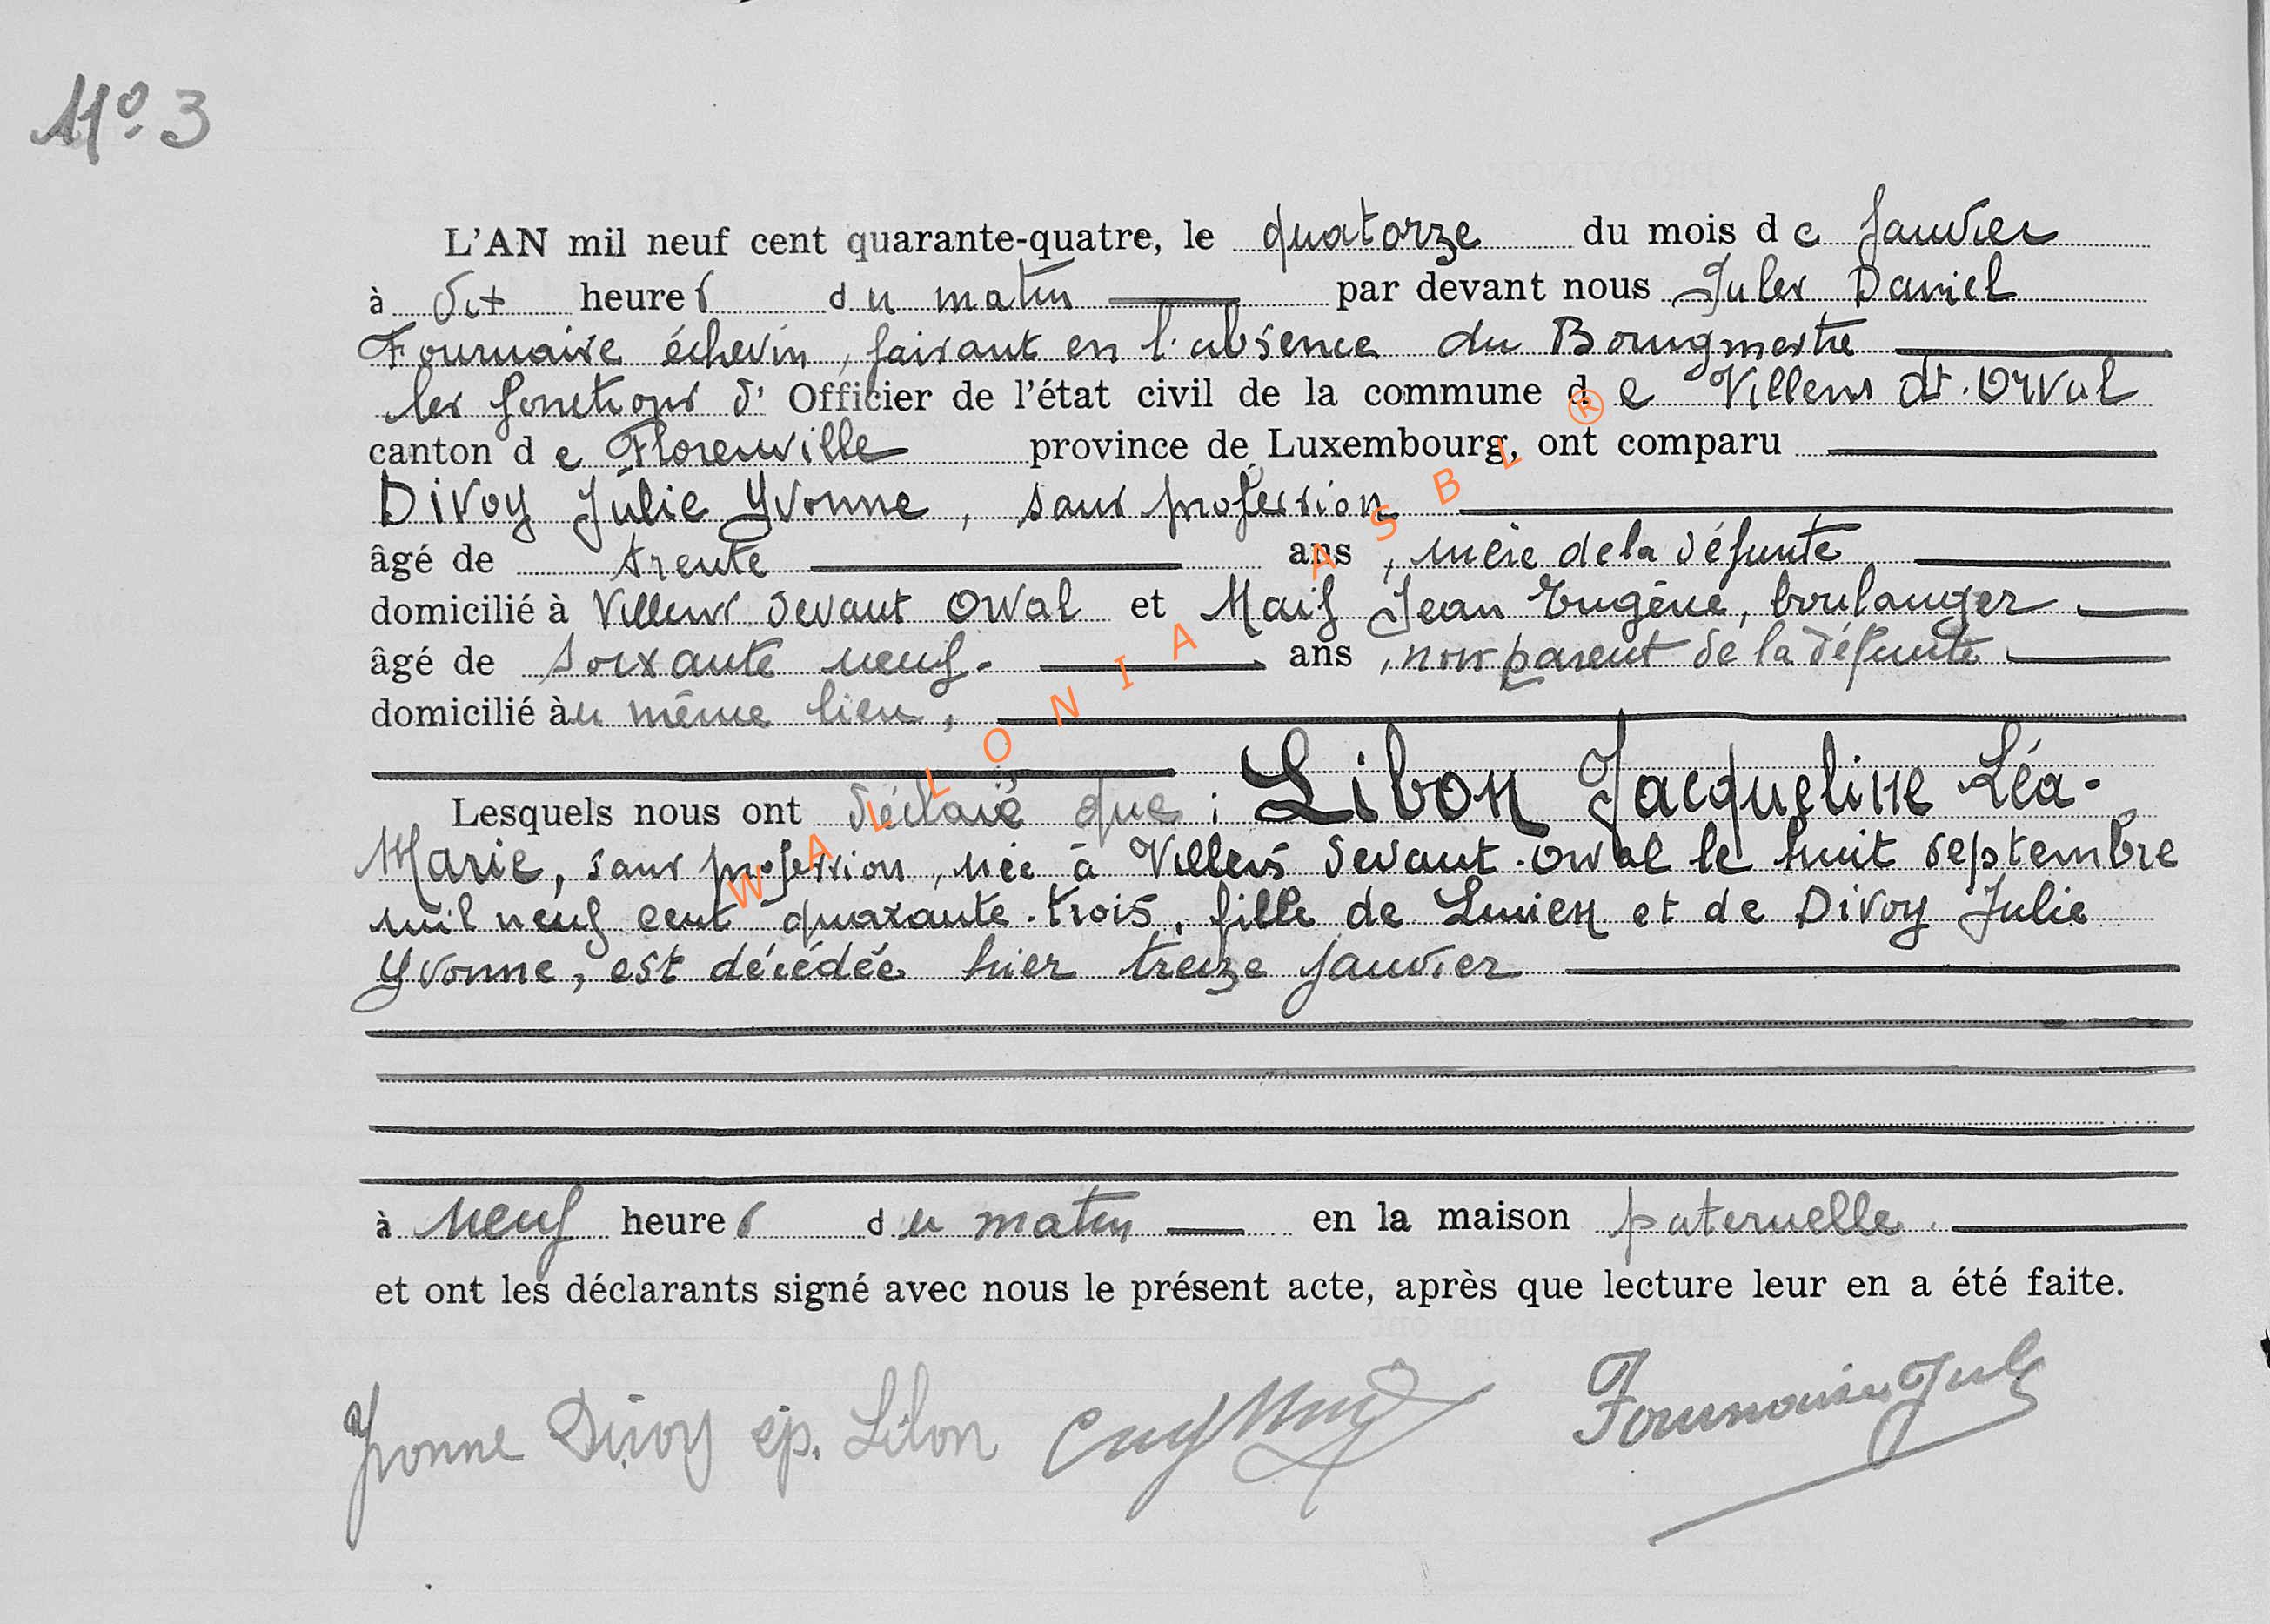 N° 3
L'AN mil neuf cent quarante-quatre, le quatorze du mois de Janvier
à dix heures du matin par devant nous Jules Daniel
Fournaise échevin, faisant en l'absence du Bourgmestre
les fonctions d' Officier de l'état civil de la commune de Villers dt. Orval
canton de Florenville province de Luxembourg, ont comparu
Divoy Julie Yvonne, sans profession
âgé de trente ans, mère de la défunte
domicilié à Villers devant Orval et Jean Eugène, boulanger
âgé de soixante neuf. ans, non parent de la défunte
domicilié au même lieu,
Lesquels nous ont déclaré que : Libon Jacqueline Léa-
Marie, sans profession, née à Villers devant-Orval le huit septembre
mil neuf cent quarante-trois, fille de Lucien et de Divoy Julie
Yvonne, est décédée hier treize janvier
à neuf heures du matin en la maison paternelle.
et ont les déclarants signé avec nous le présent acte, après que lecture leur en a été faite.
Yvonne Divoy ép. Libon
Fournaise Jules
WALLONIA ASBL ®